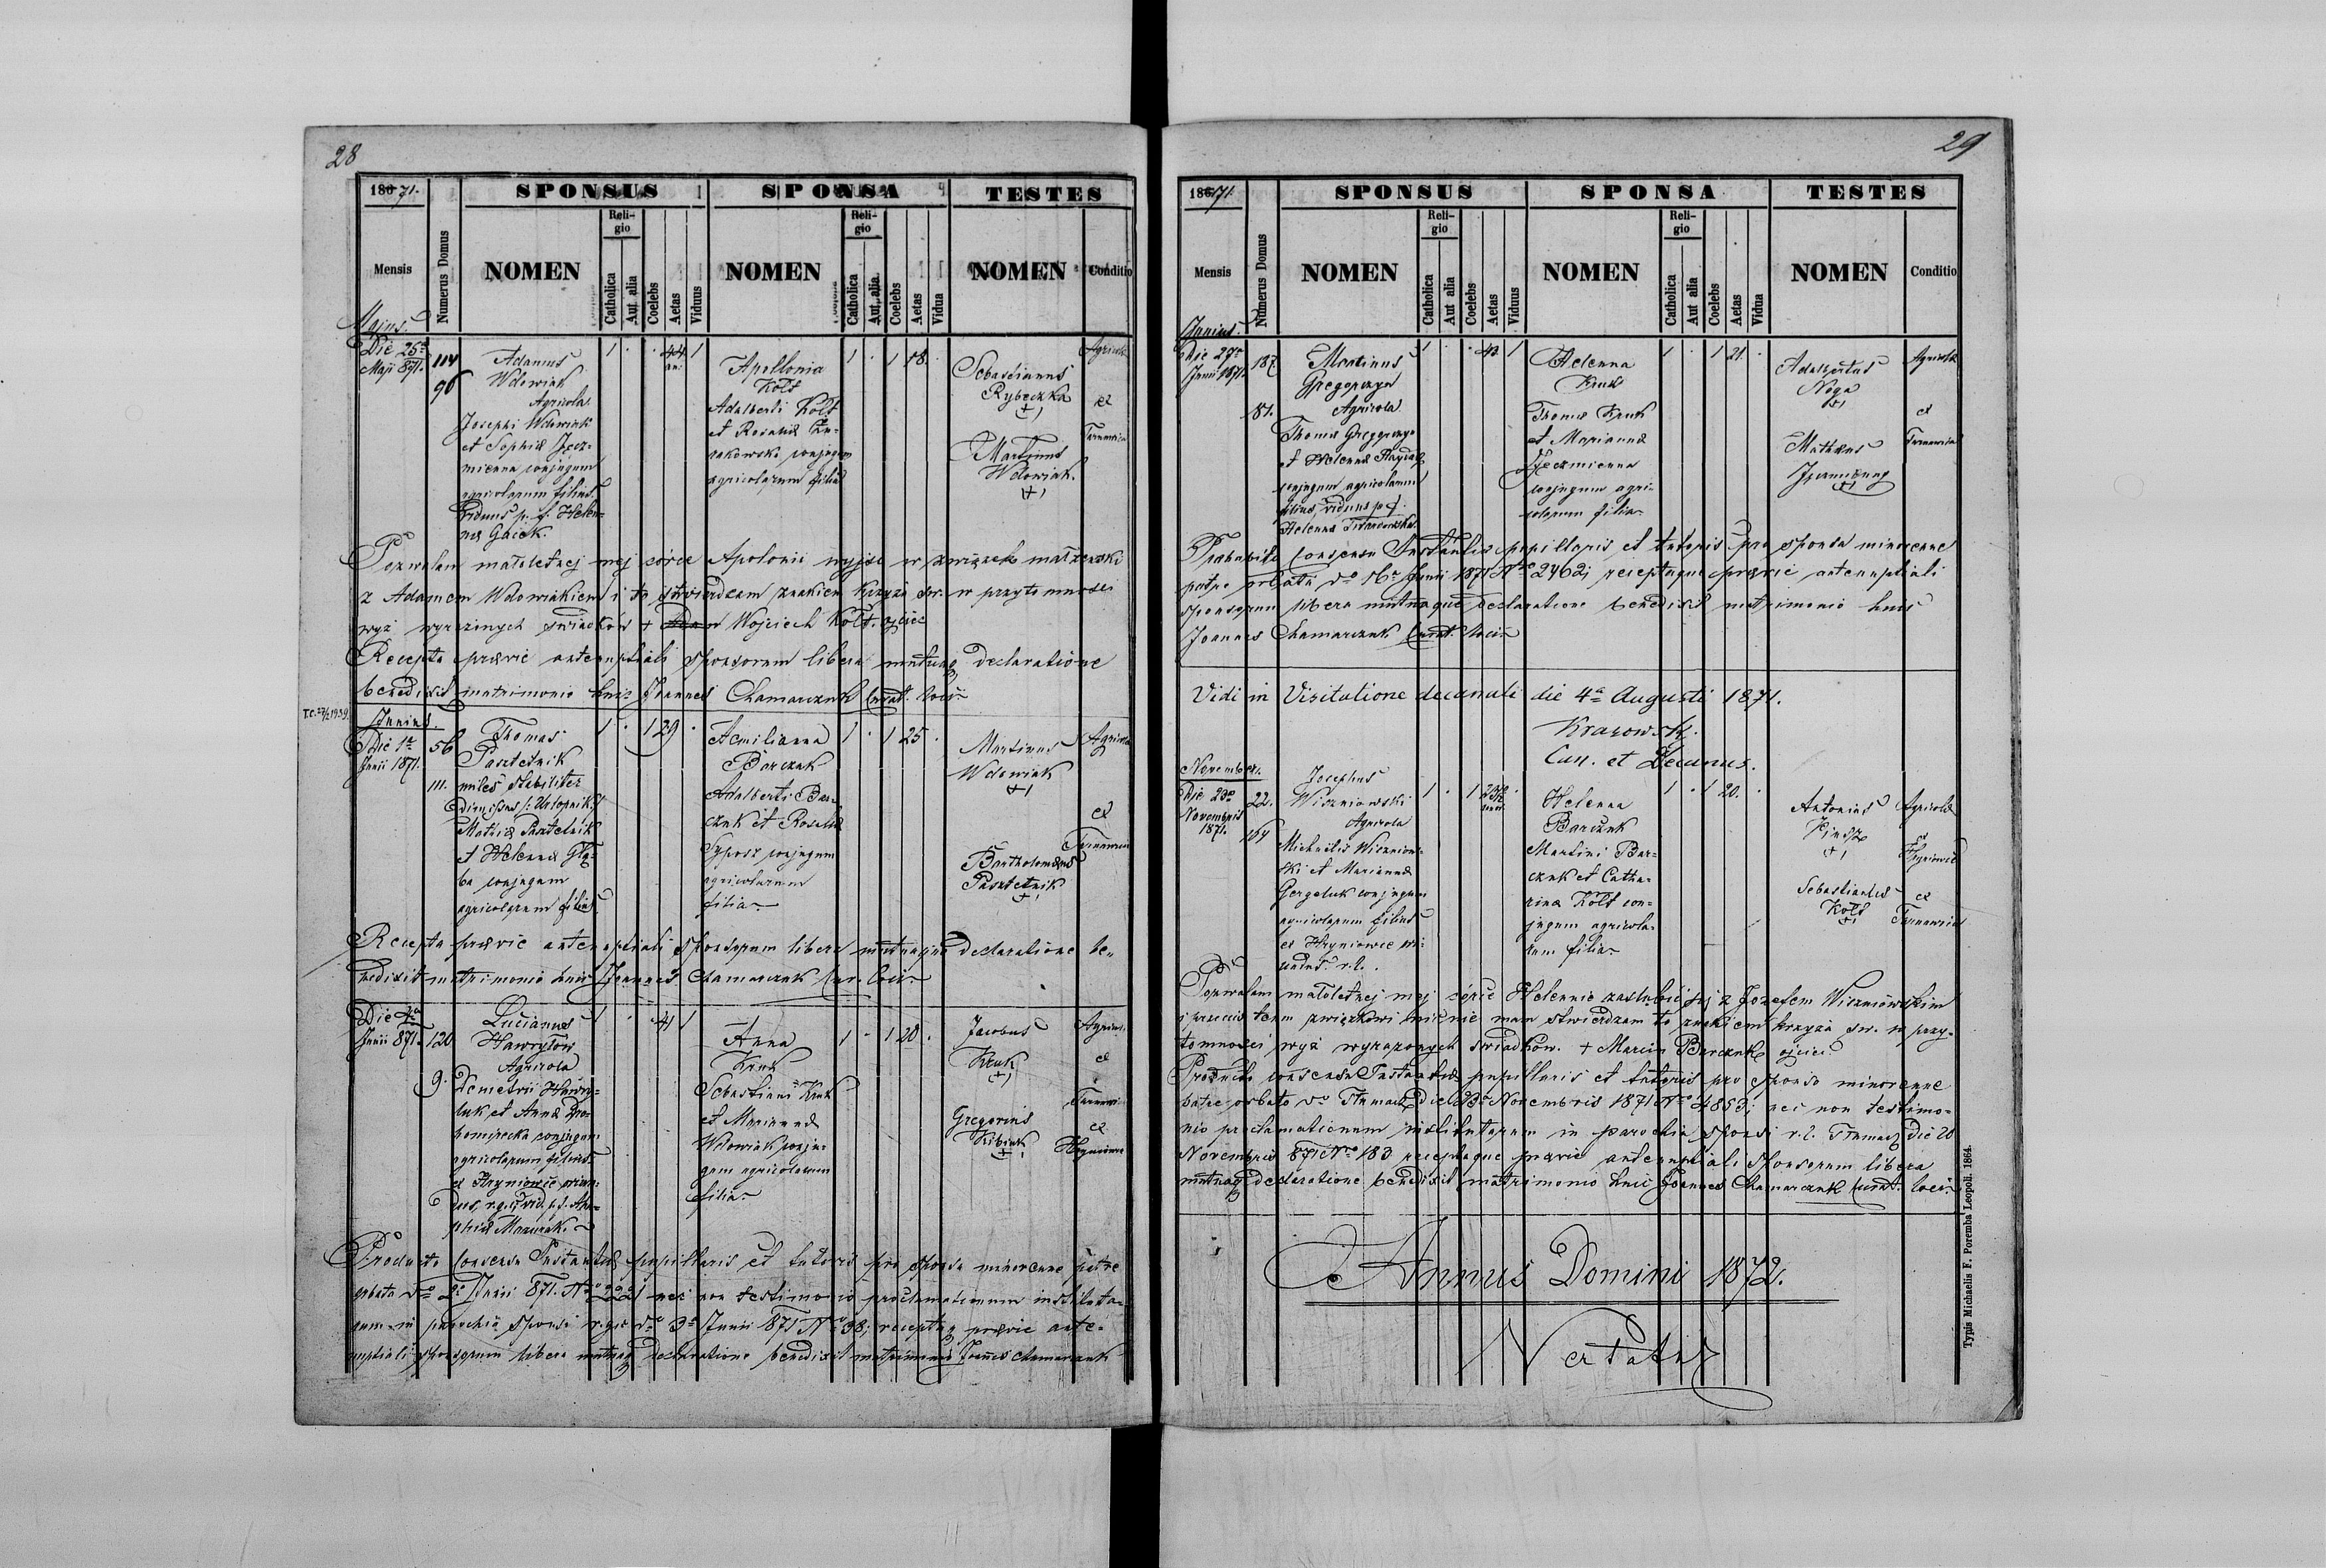 28
1871.
SPONSUS
SPONSA
TESTES
Mensis
Numerus Domus
NOMEN
Religio
Catholica
Aut alia
Coelebs
Aetas
Viduus
NOMEN
Religio
Catholica
Aut alia
Coelebs
Aetas
Vidua
NOMEN
Conditio
Majus
Die 25a
Maji 871.
114
96
Adamus
Wdowiak
Agricola
Josephi Wdowiak
et Sophiæ Jęcz-
mienna conjugum
agricolarum filius
viduus p. f. Helen-
næ Gacek.
1 . . 44 1
an:
Apollonia
Kołt
Adalberti Kołt
et Rosaliæ
conjugum
agricolarum filia
1 . 1 18.
Sebastianus
Rybeczka
+
Martinus
Wdowiak.
+
Agricolæ
ex
Tarnawica
Pozwalam małoletnej mej córce Apolonii wyjść w związek małżeński
z Adamem Wdowiakiem i to stwierdzam znakiem krzyża św. w przytomności
wyż wyrażonych świadków + Wojciech Kołt. ojciec
Recepta prævie antenuptiali sponsorum libera mutuaq declaratione
benedixit matrimonio huic Joannes Chamarczuk Curat. loci
T.C. 27/2 1939
Junius.
Die 1a
Junii 1871.
56
111.
Thomas
Pasztetnik
miles stabiliter
dimissus /: Urlopnik :/
Mathiæ Pasztetnik
et Helennæ Głę-
ba conjugum
agricolarum filius
1 . 1 29 .
Aemilianna
Barczuk
Adalberti Bar-
czuk et Rosaliæ
conjugum
agricolarum
filia
1 . 1 25 .
Martinus
Wdowiak
+
Bartholomæus
Pasztetnik
+
Agricolæ
ex
Tarnawica
Recepta prævie antenuptiali sponsorum libera mutuaque declaratione be-
nedixit matrimonio huic Joannes Chamarczuk Cur. loci
Die 4a
Junii 871.
120
9.
Lucianus
Hawryłow
Agricola
Demetrii Hawry-
luk et Annæ
conjugum
agricolarum filius
ex Hryniowce oriun-
dus, r.g. vid. p. f.
Mazurak.
1 . . 41 1
Anna
Kruk
Sebastiani Kruk
et Mariannæ
Wdowiak conju-
gum agricolarum
filia
1 . 1 20 .
Jacobus
Kruk
+
Gregorius
+
Agricolæ
ex
Tarnawica
ex
Hryniowce
Producto consensu Instantiæ pupillaris et tutoris pro sponsa minorenne patre
orbata do 2a Junii 871. No 2221 nec non testimonio proclamationum instituta-
rum in parochia sponsi r.gr. do 3a Junii 871 No 38; receptaq prævie ante-
nuptiali sponsorum libera mutuaq declaratione benedixit matrimonio Joannes Chamarczuk
29
1871.
SPONSUS
SPONSA
TESTES
Mensis
Numerus Domus
NOMEN
Religio
Catholica
Aut alia
Coelebs
Aetas
Viduus
NOMEN
Religio
Catholica
Aut alia
Coelebs
Aetas
Vidua
NOMEN
Conditio
Junius.
Die 27a
Junii 1871.
187.
81.
Martinus
Gregorczyn
Agricola
Thomæ Gregorczyn
et Helennæ
conjugum agricolarum
filius, viduus p. f.
Helennæ Twardowska.
1 . . 42 1
Helenna
Kruk
Thomæ Kruk
et Mariannæ
Jęczmienna
conjugum agri-
colarum filia
1 . 1 21 .
Adalbertus
Noga
+
Mathæus
+
Agricolæ
ex
Tarnawica
Producto consensu Instantiæ pupillaris et tutoris pro sponsa minorenne
patre orbata do 16a Junii 1871 No 2462; receptaque prævie antenuptiali
sponsorum libera mutuaque declaratione benedixit matrimonio huic
Joannes Chamarczuk Curat. loci
Vidi in Visitatione decanali die 4a Augusti 1871.
Krasowski
Can. et Decanus.
November.
Die 23a
Novembris
1871.
22.
164
Josephus
Wiszniowski
Agricola
Michaelis Wiszniow-
ski et Mariannæ
Gergeluk conjugum
agricolarum filius
ex Hryniowce ori-
undus r.l.
1 . 1 23 1/2 .
Helenna
Barczuk
Martini Bar-
czuk et Catha-
rinæ Kołt con-
jugum agricola-
rum filia
1 . 1 20 .
Antonius
+
Sebastianus
Kołt
+
Agricolæ
Hryniowce
ex
Tarnawica
Pozwalam małoletnej mej córce Helennie zaślubić się z Józefem Wiszniowskim
i przeciw temu związkowi nic nie mam stwierdzam to znakiem krzyża św. w przy-
tomności wyż wyrażonych świadków. + Marcin Barczuk ojciec.
Producto consensu Instantiæ pupillaris et tutoris pro sponso minorenne
patre orbato do Tłumacz die 13a Novembris 1871 No 4853; nec non testimo-
nio proclamationum institutarum in parochia sponsi r.l. Tłumacz die 20
Novembris 871 No 183 receptaque prævie antenuptiali sponsorum libera
mutuaq declaratione benedixit matrimonio huic Joannes Chamarczuk Curat. loci
Annus Domini 1872.
Typis Michaelis F. Poremba Leopoli. 1864.